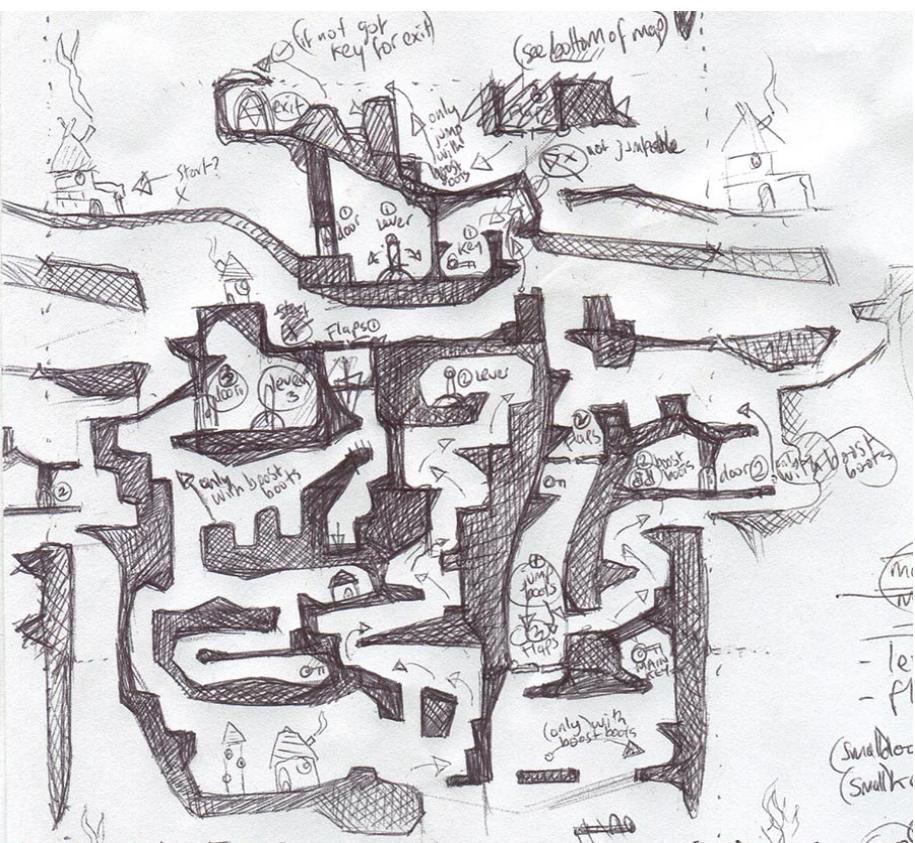 (if not got
key for exit)
(see bottom of map)
exit
only
jump
with
boost
boots
not jumpable
Start?
X
1
door
1
Lever
1
Key
Flaps 1
3
door
lever
3
2 Lever
2
flaps
2
boost
boots
door 2
only
with boost
boots
only
with boost
boots
2
1
jump
boots
2
Flaps
MAIN
KEY
(only) with
boost boots
- le
- fl
(small doo
(small k